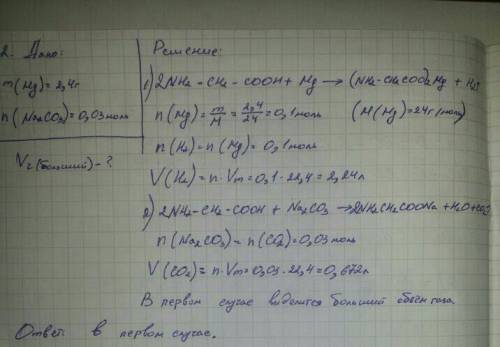 2. Дано:
m(Mg)=2,4г
n(Na₂CO₃)=0,03моль
Vг(больший)-?
Решение:
1) 2NH₂-CH₂-COOH + Mg → (NH₂-CH₂COO)₂Mg + H₂↑
n(Mg)=m/M=2,4/24=0,1моль (M(Mg)=24г/моль)
n(H₂)=n(Mg)=0,1моль
V(H₂)=n·Vm=0,1·22,4=2,24л
2) 2NH₂-CH₂-COOH + Na₂CO₃ → 2NH₂CH₂COONa + H₂O + CO₂↑
n(Na₂CO₃)=n(CO₂)=0,03моль
V(CO₂)=n·Vm=0,03·22,4=0,672л
В первом случае выделится больший объем газа.
Ответ: в первом случае.